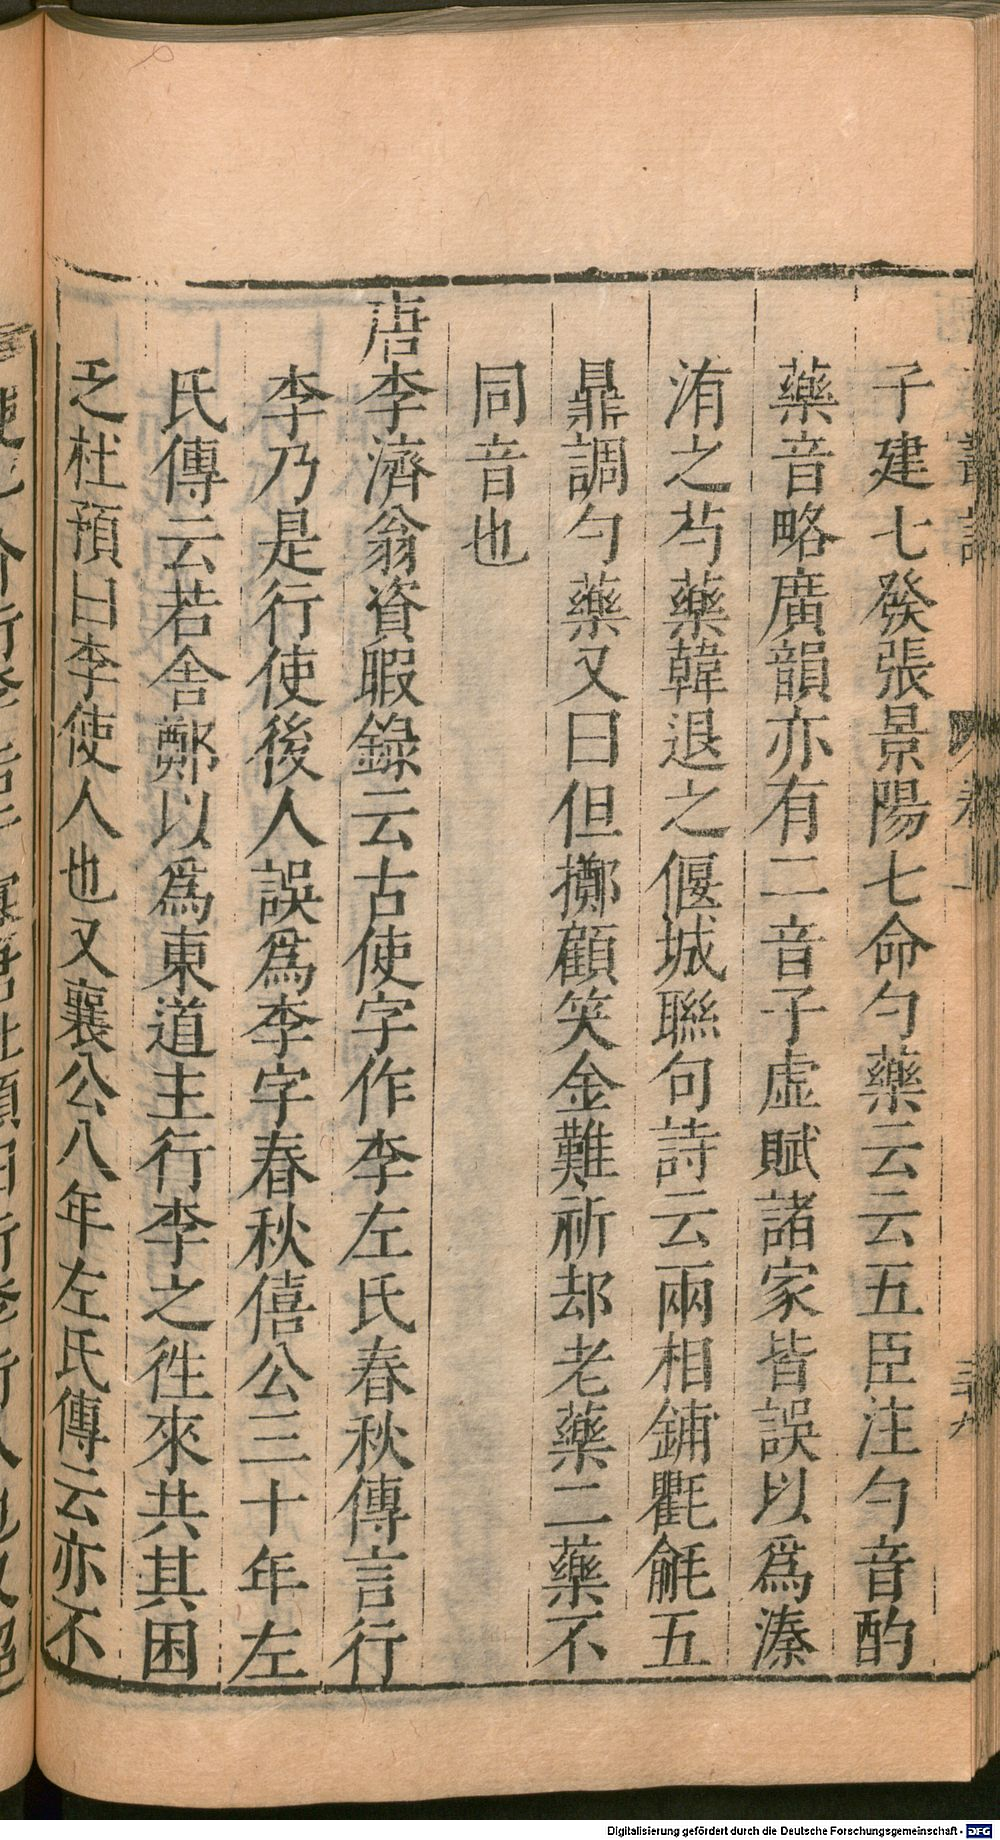 子建七發張景陽七命勺藥云云五臣注勺音酌
藥音略廣韻亦有二音子虛賦諸家皆誤以爲溱
洧之芍藥韓退之偃城聯句詩云兩相鋪氍毹五
鼎調勺藥又曰但擲顧笑金難祈却老藥二藥不
同音也
唐李濟翁資暇錄云古使字作李左氏春秋傳言行
李乃是行使後人誤爲李字春秋僖公三十年左
氏傳云若舍鄭以爲東道主行李之徃來共其困
乏杜預曰李使人也又襄公八年左氏傳云亦不
Digitalisierung gefördert durch die Deutsche Forschungsgemeinschaft - DFG